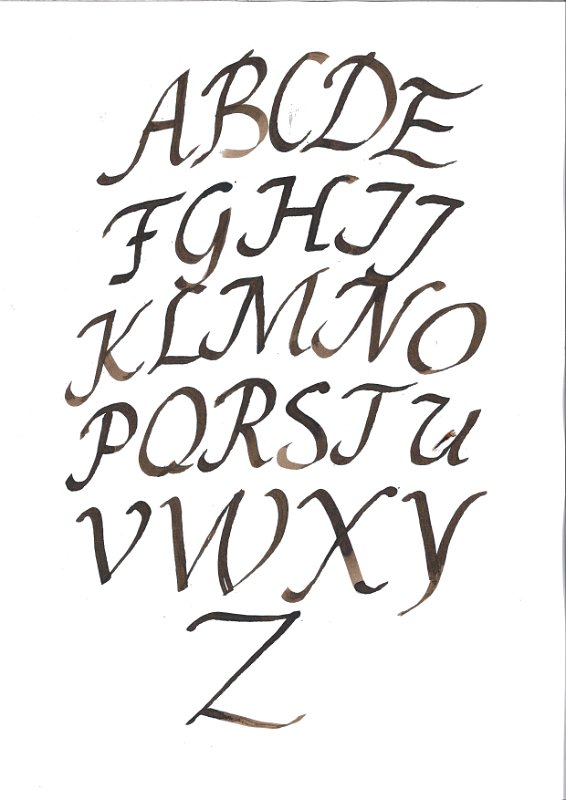 ABCDE
FGHIJ
KLMNO
PQRSTU
VWXY
Z